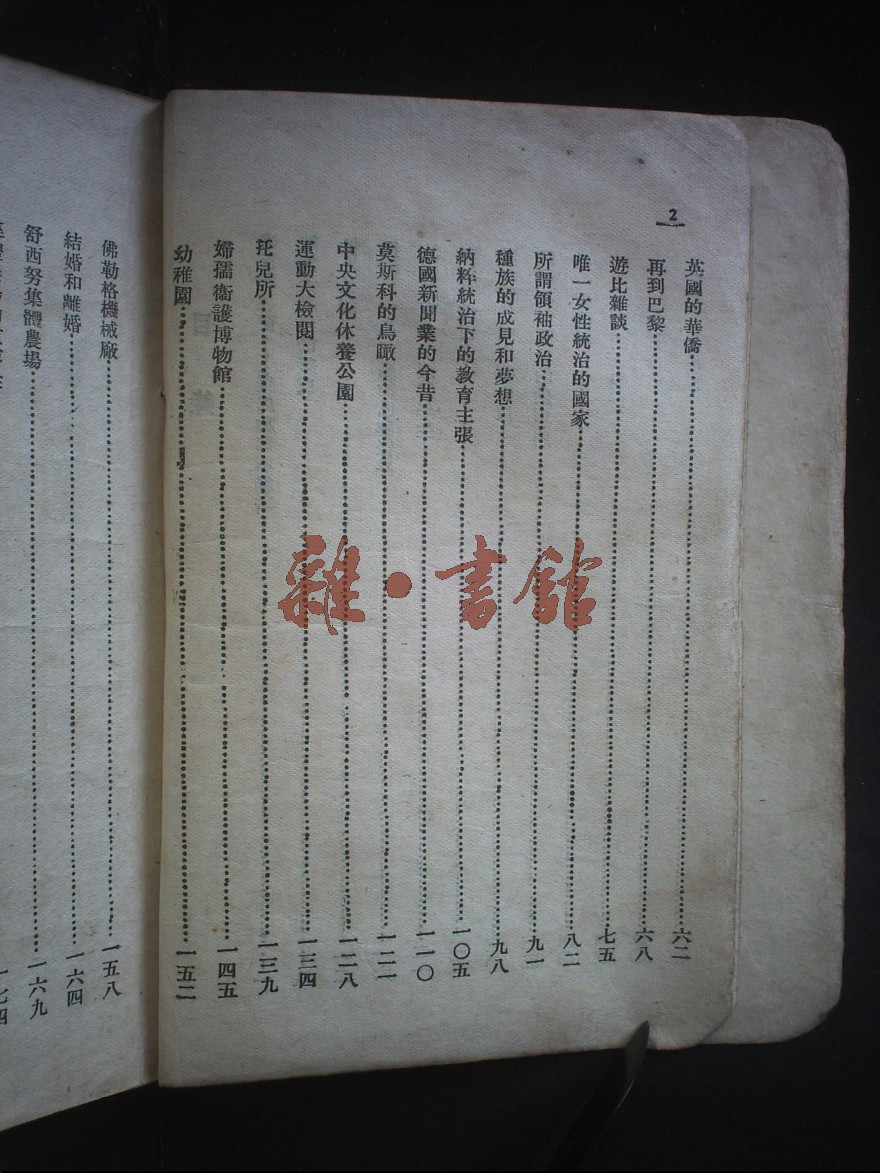 2
英國的華僑……六二
再到巴黎……六八
遊比雜談……七五
唯一女性統治的國家……八二
所謂領袖政治……九一
種族的成見和夢想……九八
納粹統治下的教育主張……一〇五
德國新聞業的今昔……一一〇
莫斯科的鳥瞰……一二一
中央文化休養公園……一二八
運動大檢閱……一三四
托兒所……一三九
婦孺衞護博物館……一四五
幼稚園……一五二
佛勒格機械廠……一五八
結婚和離婚……一六四
舒西努集體農場……一六九
一七四
雜·書館